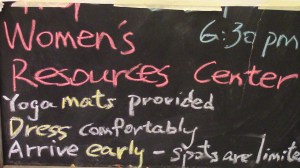 Women's 6:30 pm
Resources Center
Yoga mats provided
Dress comfortably
Arrive early - spots are limite